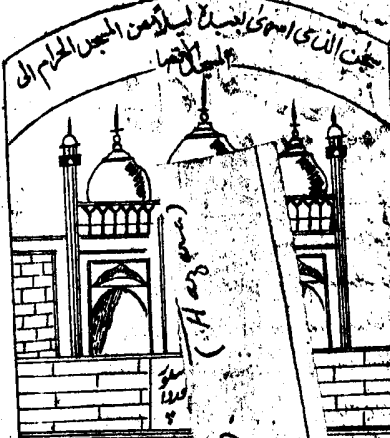 سبحن الذی اسری بعبدہ لیلاً من المسجد الحرام الی
المسجد الاقصا
(Hazara)